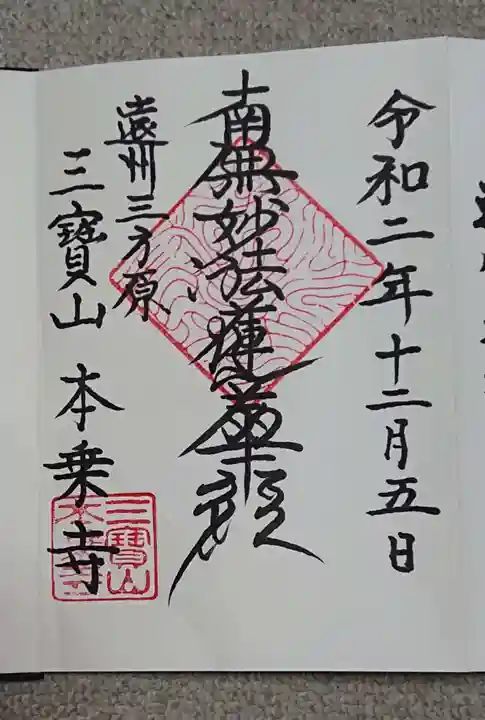 令和二年十二月五日
南無妙法蓮華経
遠州三方原
三寳山 本乗寺
三寳山
本乗寺